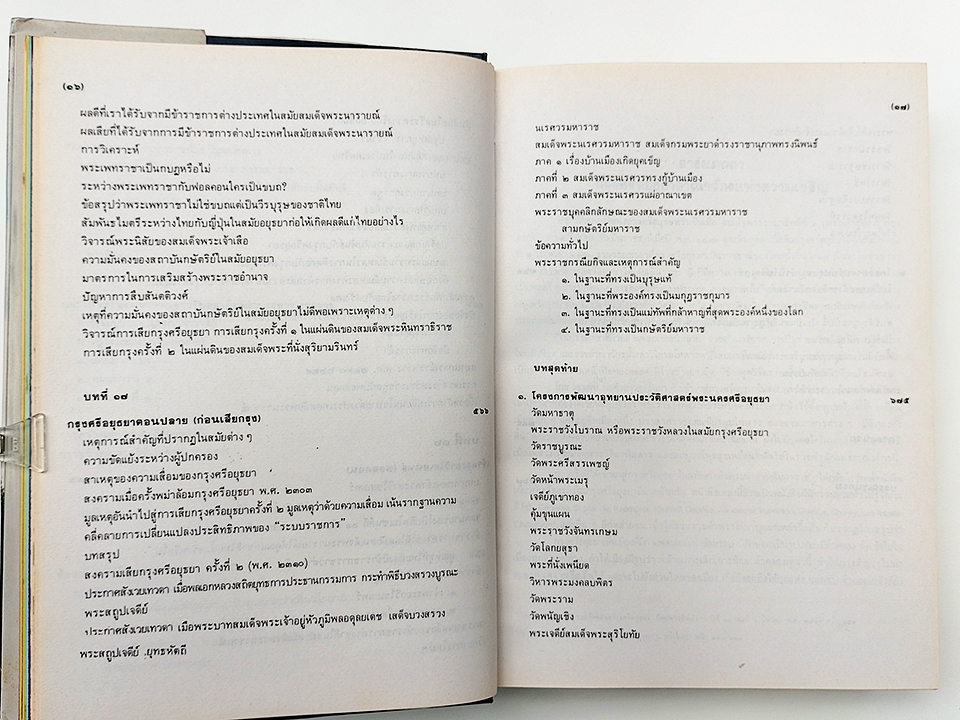 (๑๖)
ผลดีที่เราได้รับจากมีข้าราชการต่างประเทศในสมัยสมเด็จพระนารายณ์
ผลเสียที่ได้รับจากการมีข้าราชการต่างประเทศในสมัยสมเด็จพระนารายณ์
การวิเคราะห์
พระเพทราชาเป็นกบฏหรือไม่
ระหว่างพระเพทราชากับฟอลคอนใครเป็นขบถ?
ข้อสรุปว่าพระเพทราชาไม่ใช่ขบถแต่เป็นวีรบุรุษของชาติไทย
สัมพันธไมตรีระหว่างไทยกับญี่ปุ่นในสมัยอยุธยาก่อให้เกิดผลดีแก่ไทยอย่างไร
วิจารณ์พระนิสัยของสมเด็จพระเจ้าเสือ
ความมั่นคงของสถาบันกษัตริย์ในสมัยอยุธยา
มาตรการในการเสริมสร้างพระราชอำนาจ
ปัญหาการสืบสันตติวงศ์
เหตุที่ความมั่นคงของสถาบันกษัตริย์ในสมัยอยุธยาไม่ดีพอเพราะเหตุต่าง ๆ
วิจารณ์การเสียกรุงศรีอยุธยา การเสียกรุงครั้งที่ ๑ ในแผ่นดินของสมเด็จพระหินทราธิราช
การเสียกรุงครั้งที่ ๒ ในแผ่นดินของสมเด็จพระที่นั่งสุริยามรินทร์
บทที่ ๑๗
กรุงศรีอยุธยาตอนปลาย (ก่อนเสียกรุง) ๕๖๖
เหตุการณ์สำคัญที่ปรากฏในสมัยต่าง ๆ
ความขัดแย้งระหว่างผู้ปกครอง
สาเหตุของความเสื่อมของกรุงศรีอยุธยา
สงครามเมื่อครั้งพม่าล้อมกรุงศรีอยุธยา พ.ศ. ๒๓๐๓
มูลเหตุอันนำไปสู่การเสียกรุงศรีอยุธยาครั้งที่ ๒ มูลเหตุว่าด้วยความเสื่อม เน้นรากฐานความ
คลี่คลายการเปลี่ยนแปลงประสิทธิภาพของ “ระบบราชการ”
บทสรุป
สงครามเสียกรุงศรีอยุธยา ครั้งที่ ๒ (พ.ศ. ๒๓๑๐)
ประกาศสังเวยเทวดา เมื่อพลเอกหลวงสถิตยุทธการประธานกรรมการ กระทำพิธีบวงสรวงบูรณะ
พระสถูปเจดีย์
ประกาศสังเวยเทวดา เมื่อพระบาทสมเด็จพระเจ้าอยู่หัวภูมิพลอดุลยเดช เสด็จบวงสรวง
พระสถูปเจดีย์ ยุทธหัตถี
(๑๗)
นเรศวรมหาราช
สมเด็จพระนเรศวรมหาราช สมเด็จกรมพระยาดำรงราชานุภาพทรงนิพนธ์
ภาค ๑ เรื่องบ้านเมืองเกิดยุคเข็ญ
ภาคที่ ๒ สมเด็จพระนเรศวรทรงกู้บ้านเมือง
ภาคที่ ๓ สมเด็จพระนเรศวรแผ่อาณาเขต
พระราชบุคคลิกลักษณะของสมเด็จพระนเรศวรมหาราช
สามกษัตริย์มหาราช
ข้อความทั่วไป
พระราชกรณียกิจและเหตุการณ์สำคัญ
๑. ในฐานะที่ทรงเป็นบุรุษแท้
๒. ในฐานะที่พระองค์ทรงเป็นมกุฎราชกุมาร
๓. ในฐานะที่ทรงเป็นแม่ทัพที่กล้าหาญที่สุดพระองค์หนึ่งของโลก
๔. ในฐานะที่ทรงเป็นกษัตริย์มหาราช
บทสุดท้าย
๑. โครงการพัฒนาอุทยานประวัติศาสตร์พระนครศรีอยุธยา ๖๗๕
วัดมหาธาตุ
พระราชวังโบราณ หรือพระราชวังหลวงในสมัยกรุงศรีอยุธยา
วัดราชบูรณะ
วัดพระศรีสรรเพชญ์
วัดหน้าพระเมรุ
เจดีย์ภูเขาทอง
คุ้มขุนแผน
พระราชวังจันทรเกษม
วัดโลกยสุธา
พระที่นั่งเพนียด
วิหารพระมงคลบพิตร
วัดพระราม
วัดพนัญเชิง
พระเจดีย์สมเด็จพระสุริโยทัย